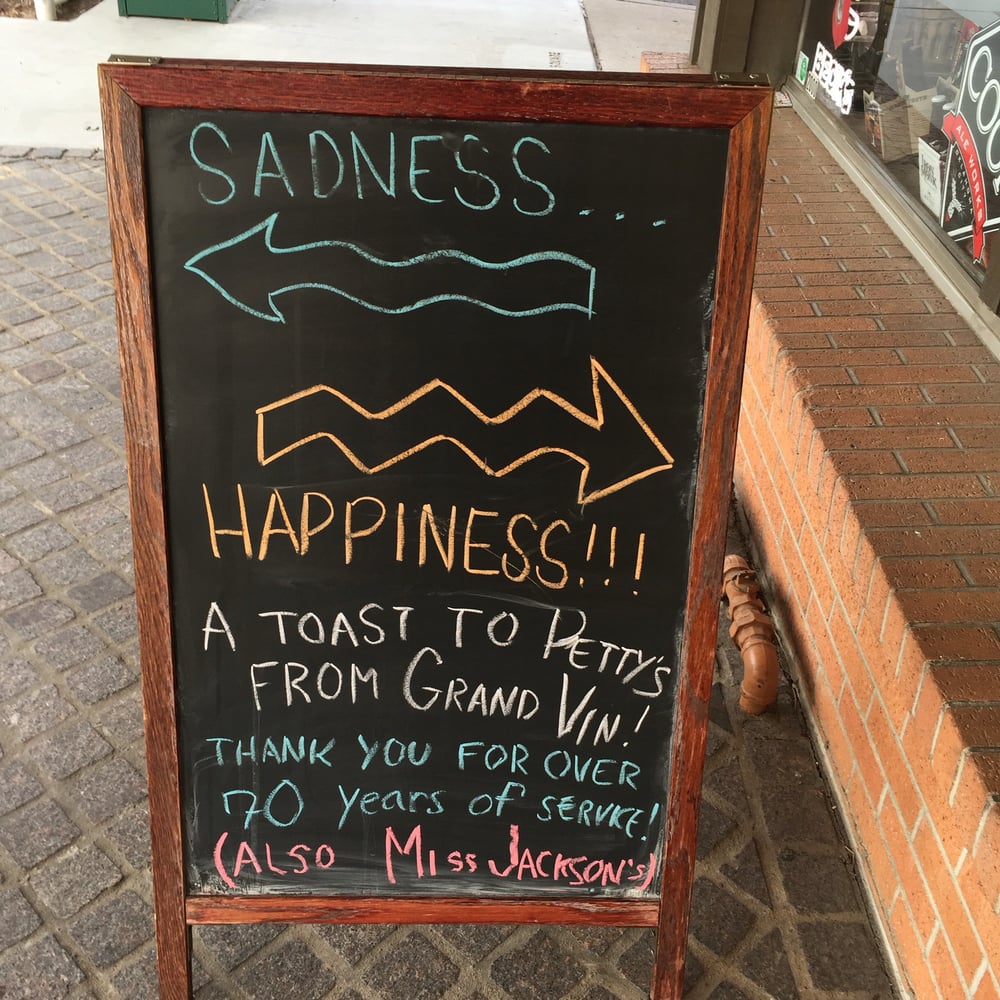 SADNESS....
HAPPINESS!!!
A TOAST TO PETTY'S
FROM GRAND VIN!
THANK YOU FOR OVER
70 years of SERVICE!
(ALSO MISS JACKSON'S)
ALE WORKS